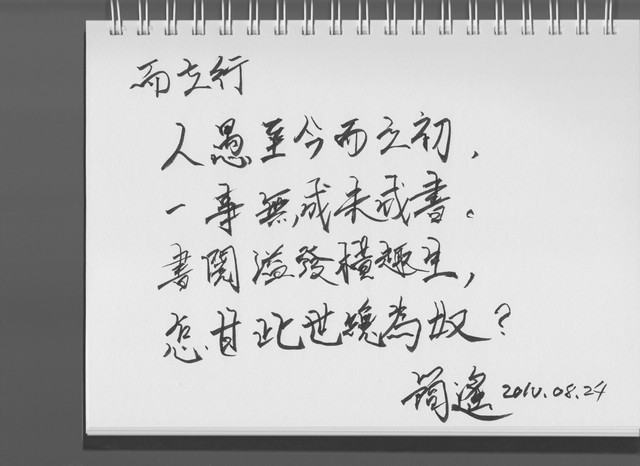 而立行
人愚至今而立初，
一事無成未成書。
書閱溢發橫趣生，
怎甘此世為奴？
簡遙 2010.08.24